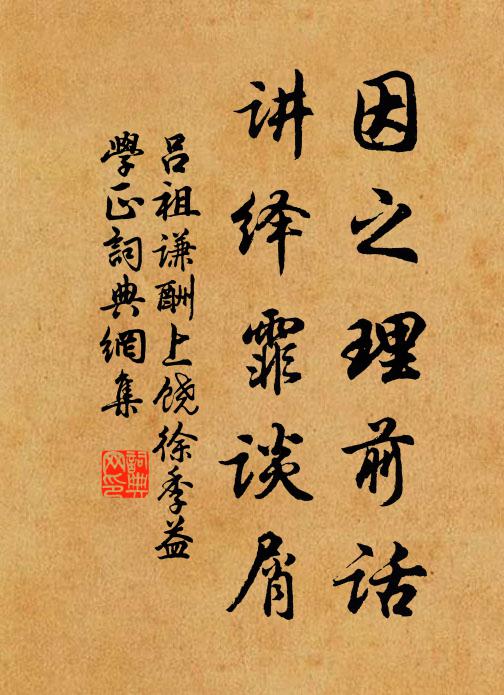 因之理前话
讲绎霏谈屑
吕祖谦酬上饶徐季益
學正詞典網集
詞典
网印